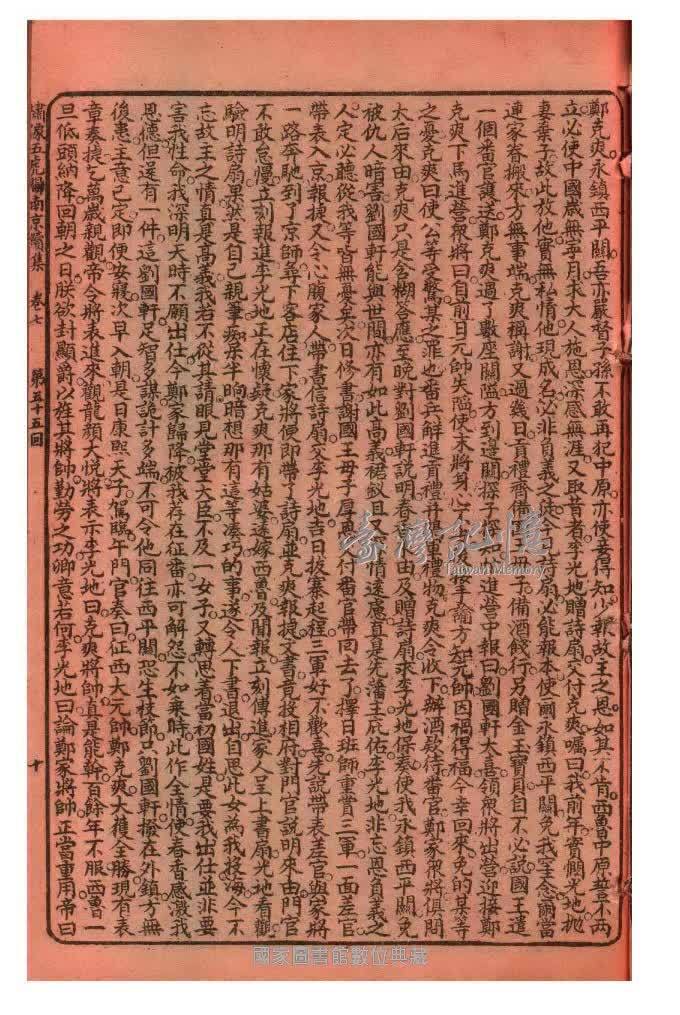 鄭克爽永鎮西平關吾亦嚴督子孫不敢再犯中原亦使妾得知少報故主之恩如其不肯西魯中原誓不兩
立必使中國歲無寧月求大人施恩深感無涯又取昔者李光地贈詩扇交付克爽囑曰我前年實憫光地拋
妻棄子故此放他實無私情他現成名必非負義之徒今 詩扇必能報本使爾永鎮西平關免我室念爾當
速家眷搬來方無事端克爽稱謝又過幾日貢禮齊備 備酒餞行另贈金玉寶貝自不必説國王遣
一個番官護送鄭克爽過了數座關隘方到邊關探子探知 進營中報曰劉國軒大喜領衆將出營迎接鄭
克爽下馬進營衆將曰自前日元帥失陷使末將身心 方知元帥因禍得福今幸回來免的某等
之憂克爽曰使公等受驚某之罪也番兵解進貢禮并得軍禮物克爽令收下辦酒款待番官鄭家衆將俱問
太后來由克爽只是含糊答應至晚對劉國軒説明春 由及贈詩扇求李光地保奏使我永鎮西平關免
被仇人暗害劉國軒能與世間亦有如此高義裙釵且又 情遠慮真是先藩主庇佑李光地非忘恩負義之
人定必聽從我等皆無憂矣次日修書謝國王母子厚恩 付番官帶回去了擇日班師重賞三軍一面差官
帶表入京報捷又令心腹家人帶書信詩扇交李光地吉日拔寨起程三軍好不歡喜先説帶表差官與家將
一路奔馳到了京師尋下客店住下家將便即帶了詩扇並克爽報捷文書竟投相府對門官説明來由門官
不敢怠慢立刻報進李光地正在懷疑克爽那有姑婆遠嫁西魯及聞報立刻傳進家人呈上書扇光地看觀
驗明詩扇果然是自己親筆痴呆半晌暗想那有這等湊巧的事遂令人下書退出自思此女為我投海今不
忘故主之情真是高義我若不從其請眼見堂堂大臣不及一女子又轉思看當初國姓是要我出仕並非要
害我性命我深明天時不願出仕今鄭家歸降被我存在征番亦可解怨不如乗時此作全情使春香感激我
恩德但還有一件這劉國軒足智多謀詭計多端不可令他同往西平關恐生枝節只劉國軒撥在外鎮方無
後患主意已定即便安寢次早入朝是日康熙天子駕臨午門官奏曰征西大元帥鄭克爽大獲全勝現有表
章奏捷乞萬歲親觀帝令將表進來觀龍顏大悦將表示李光地曰克爽將帥真是能幹百餘年不服西魯一
旦低頭納降回朝之日朕欲封顯爵以旌其將帥勤勞之功卿意若何李光地曰論鄭家將帥正當重用帝曰
繡像五虎鬧南京續集 卷七 第五十五回 十
臺灣記憶
Taiwan Memory
國家圖書館數位典藏